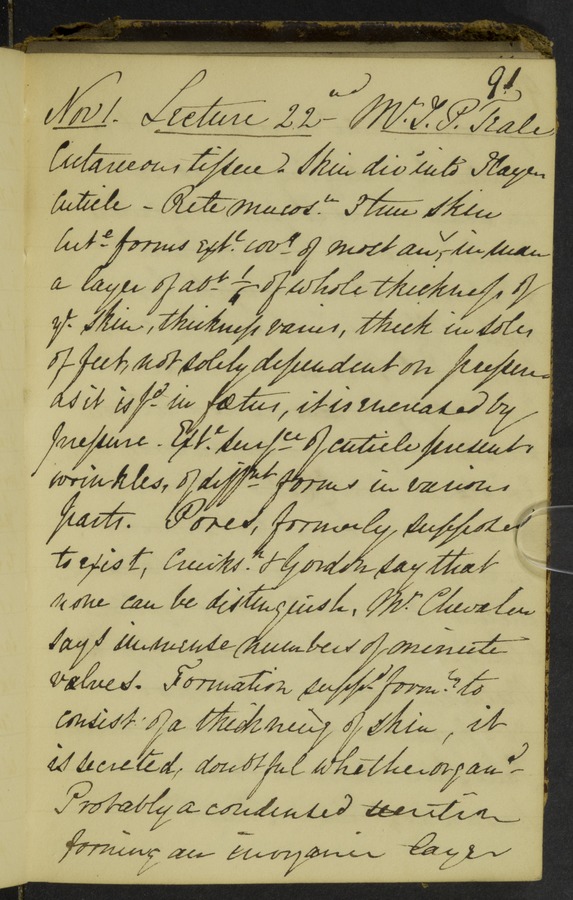 91
Nov 1. Lecture 22nd Mr. T. P. Teale
Cutaneous tissue. Skin divd into 3 layers
Cuticle - Rete mucosm 3 true skin
Cute forms extl covg of most anls, in man
a layer of abt 1/6 of whole thickness of
ye skin, thickness varies, thick in soles
of feet, not solely dependent on pressure
as it is fd in foetus, it is encreased by
pressure. Extr surfce of cuticle presents
wrinkles, of diffnt forms in various
parts. Pores, formerly supposed
to exist, Cruiks.k & Gordon say that
none can be distinguish, Mr Chevalier
says immense numbers of minute
valves. Formation suppd formly to
consist of a thickneing of skin, it
is secreted, doubtful whether organd -
Probably a condensed
forming an inorganic layer